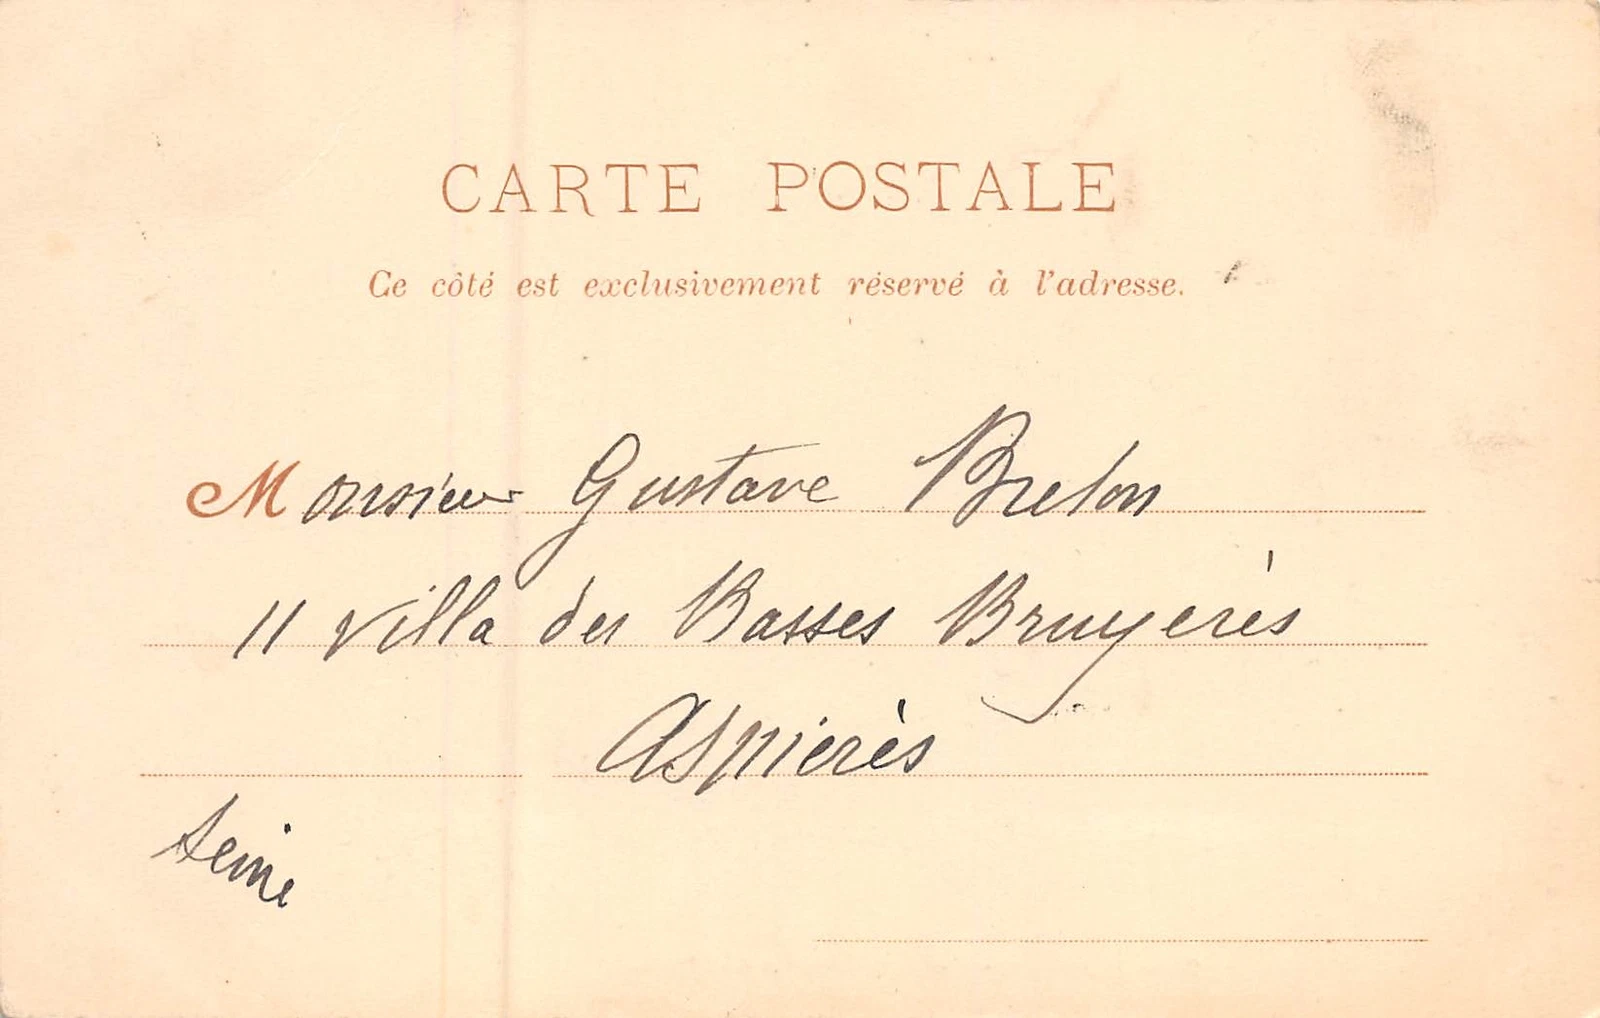 CARTE POSTALE
Ce côté est exclusivement réservé à l'adresse.
Monsieur Gustave Breton
11 Villa des Basses Bruyerès
Asnierès
Seine